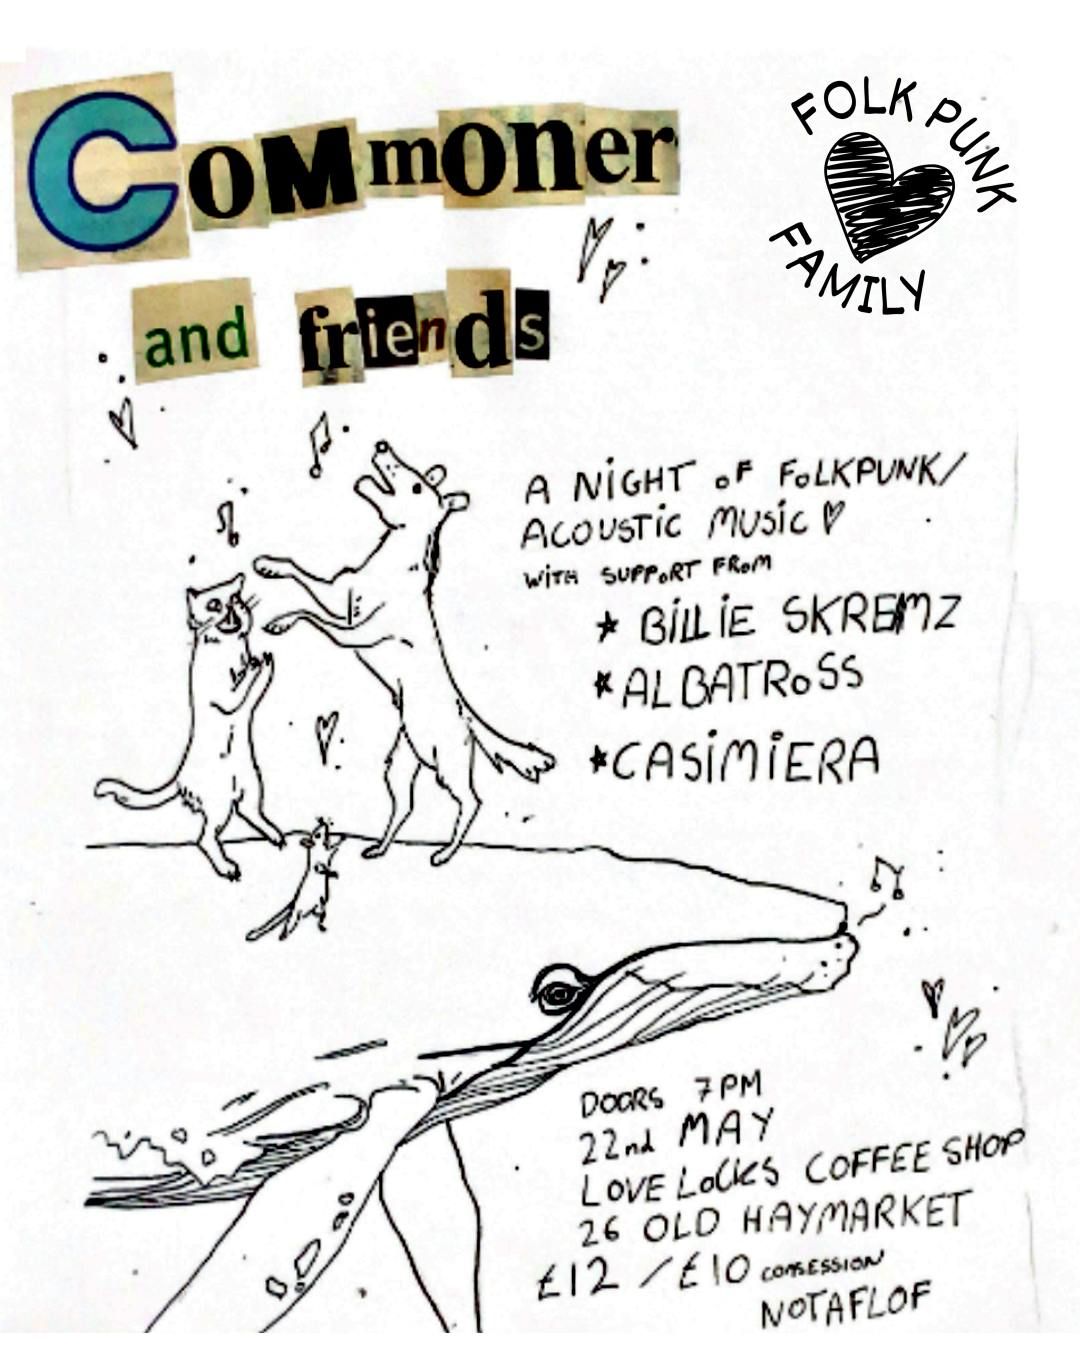 Commoner
FOLK PUNK
FAMILY
and friends
A NiGHT oF FoLKPUNK/
ACOUSTiC MUSiC
WiTH SUPPoRT FRoM
* BiLLiE SKREMZ
* ALBATRoSS
* CASiMiERA
DOORS 7PM
22nd MAY
LOVE LoCKS COFFEE SHOP
26 OLD HAYMARKET
£12 / £10 CONSESSION
NOTAFLOF